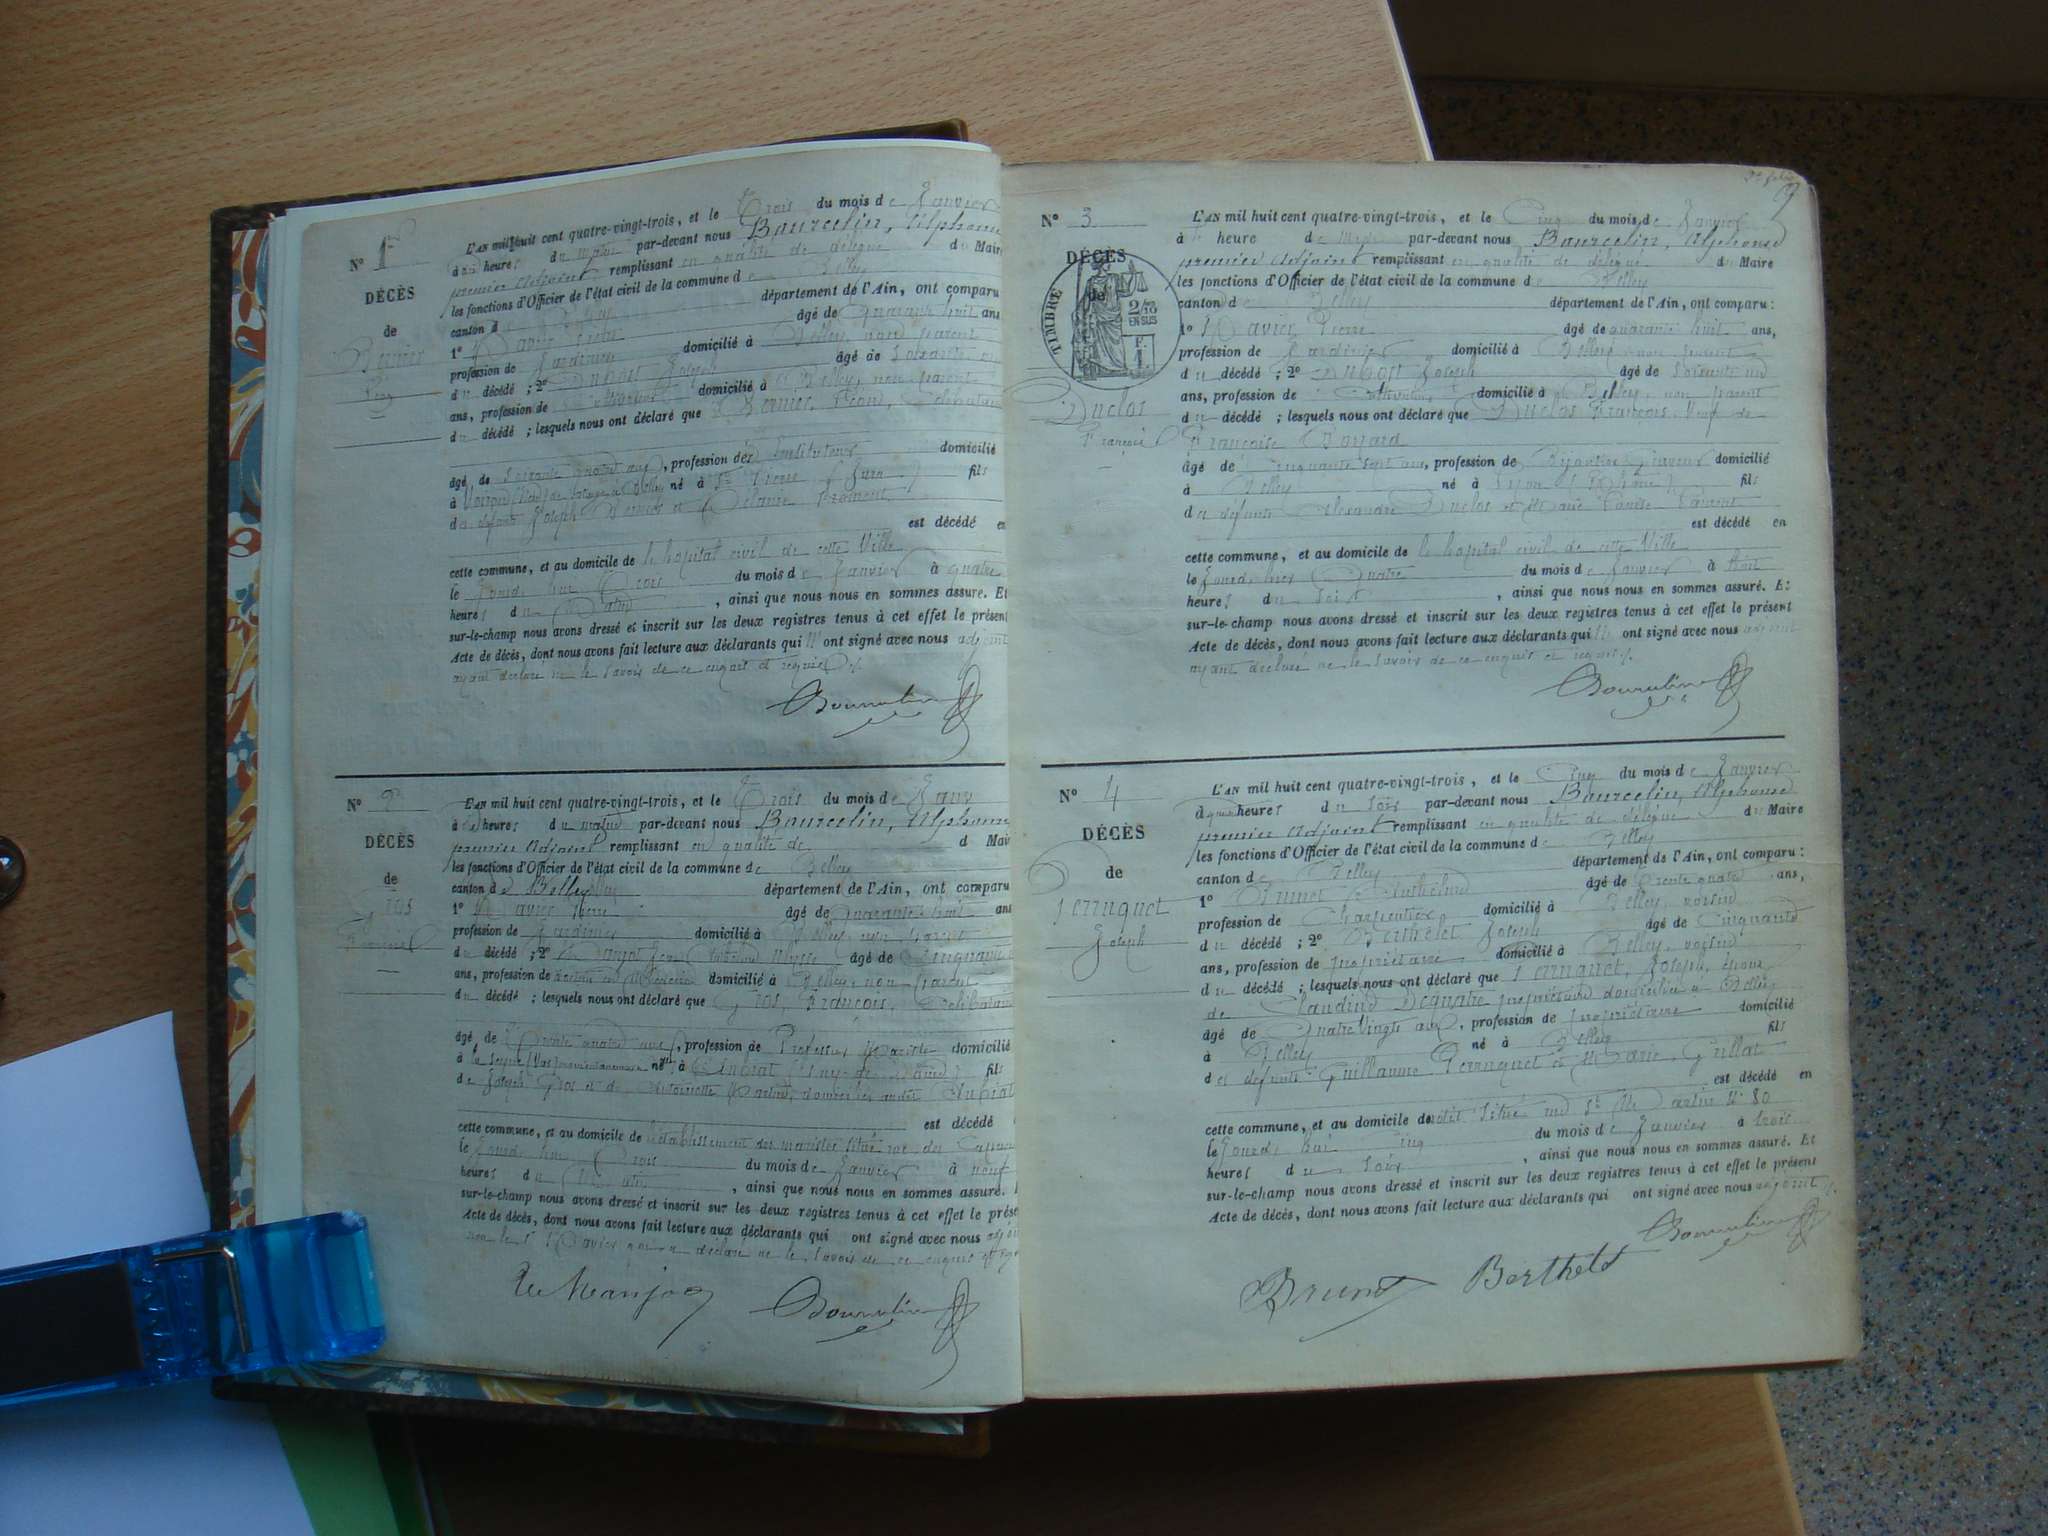 N° 1er
DÉCÈS
de
Bernier
L'AN mil huit cent quatre-vingt-trois, et le Trois du mois de Janvier
à heures du matin par-devant nous Bourcelin, Alphonse
premier Adjoint remplissant en qualité de délégué du Maire
les fonctions d'Officier de l'état civil de la commune de Belley
canton d département de l'Ain, ont comparu
1° Ravier Pierre âgé de Quarante huit ans
profession de Jardinier domicilié à Belley, non parent
du décédé ; 2° Dubost Joseph âgé de Soixante
ans, profession de domicilié à Belley, non parent
du décédé ; lesquels nous ont déclaré que
âgé de Soixante ans, profession de Instituteur domicilié
à né à St Pierre (Jura) fils
des défunts Joseph Bernier et Froment
est décédé en
cette commune, et au domicile de l'hopital civil de cette Ville
le jourd'hui Trois du mois de Janvier à quatre
heures du Matin, ainsi que nous nous en sommes assuré. Et
sur-le-champ nous avons dressé et inscrit sur les deux registres tenus à cet effet le présent
Acte de décès, dont nous avons fait lecture aux déclarants qui n'ont signé avec nous adjoint
ayant déclaré ne le savoir de ce enquis et requis
Bourcelin
N° 2
DÉCÈS
de
Gros
François
L'AN mil huit cent quatre-vingt-trois, et le Trois du mois de Janv
à heures du matin par-devant nous Bourcelin, Alphonse
premier Adjoint remplissant en qualité de d Mair
les fonctions d'Officier de l'état civil de la commune de Belley
canton de Belley département de l'Ain, ont comparu
1° Ravier Pierre âgé de Quarante huit ans
profession de Jardinier domicilié à Belley, non parent
du décédé ; 2° âgé de Cinquante
ans, profession de domicilié à Belley, non parent
du décédé ; lesquels nous ont déclaré que Gros, François, Célibataire
âgé de Trente quatre ans, profession de Professeur Mariste domicilié
à la Seyne (Var) né à (Puy-de-Dôme) fils
de Joseph Gros et de Antoinette
est décédé
cette commune, et au domicile de l'établissement des maristes situé rue des
le jourd'hui Trois du mois de Janvier à neuf
heures du Matin, ainsi que nous nous en sommes assuré.
sur-le-champ nous avons dressé et inscrit sur les deux registres tenus à cet effet le prése
Acte de décès, dont nous avons fait lecture aux déclarants qui ont signé avec nous
non le Sr Ravier qui a déclaré ne le savoir de ce enquis et
Bourcelin
N° 3
DÉCÈS
de
TIMBRE
2/10
EN SUS
F.
1
Duclos
François
L'AN mil huit cent quatre-vingt-trois, et le Cinq du mois de Janvier
à heure de par-devant nous Bourcelin, Alphonse
premier Adjoint remplissant en qualité de délégué du Maire
les fonctions d'Officier de l'état civil de la commune de Belley
canton de Belley département de l'Ain, ont comparu :
1° Ravier Pierre âgé de quarante huit ans,
profession de Jardinier domicilié à Belley non parent
du décédé ; 2° Dubost Joseph âgé de Soixante
ans, profession de domicilié à Belley, non parent
du décédé ; lesquels nous ont déclaré que Duclos François, Veuf de
Françoise
âgé de Cinquante sept ans, profession de Bijoutier graveur domicilié
à Belley né à Lyon (Rhône) fils
des défunts Alexandre Duclos et Marie
est décédé en
cette commune, et au domicile de l'hopital civil de cette Ville
le jourd'hier Quatre du mois de Janvier à huit
heures du soir, ainsi que nous nous en sommes assuré. Et
sur-le-champ nous avons dressé et inscrit sur les deux registres tenus à cet effet le présent
Acte de décès, dont nous avons fait lecture aux déclarants qui n'ont signé avec nous adjoint
ayant déclaré ne le savoir de ce enquis et requis
Bourcelin
N° 4
DÉCÈS
de
Perruquet
Joseph
L'AN mil huit cent quatre-vingt-trois, et le Cinq du mois de Janvier
à heures du Soir par-devant nous Bourcelin, Alphonse
premier Adjoint remplissant en qualité de délégué du Maire
les fonctions d'Officier de l'état civil de la commune de Belley
canton de Belley département de l'Ain, ont comparu :
1° Brunet Anthelme âgé de Trente quatre ans,
profession de Charpentier domicilié à Belley, voisin
du décédé ; 2° Berthelet Joseph âgé de Cinquante
ans, profession de propriétaire domicilié à Belley, voisin
du décédé ; lesquels nous ont déclaré que Perruquet, Joseph, époux
de Claudine propriétaire domiciliée à Belley
âgé de Quatre Vingts ans, profession de propriétaire domicilié
à Belley né à Belley fils
des défunts Guillaume Perruquet et Marie Guillat
est décédé en
cette commune, et au domicile de situé rue St Martin N° 80
le jourd'hui Cinq du mois de Janvier à trois
heures du Soir, ainsi que nous nous en sommes assuré. Et
sur-le-champ nous avons dressé et inscrit sur les deux registres tenus à cet effet le présent
Acte de décès, dont nous avons fait lecture aux déclarants qui ont signé avec nous adjoint
Bourcelin
Brunet Berthelet